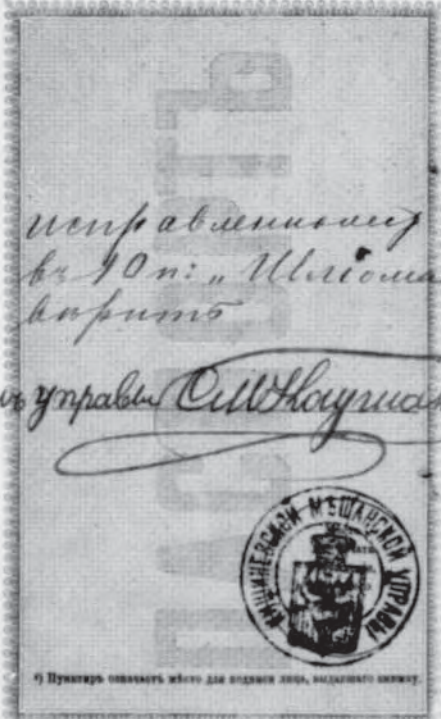 исправленному
въ 10 п: „Шлiома
вѣрить
управы
КИШИНЕВСКОЙ МѢЩАНСКОЙ УПРАВЫ
*) Пунктиръ означаетъ мѣсто для подписи лица, выдавшаго книжку.